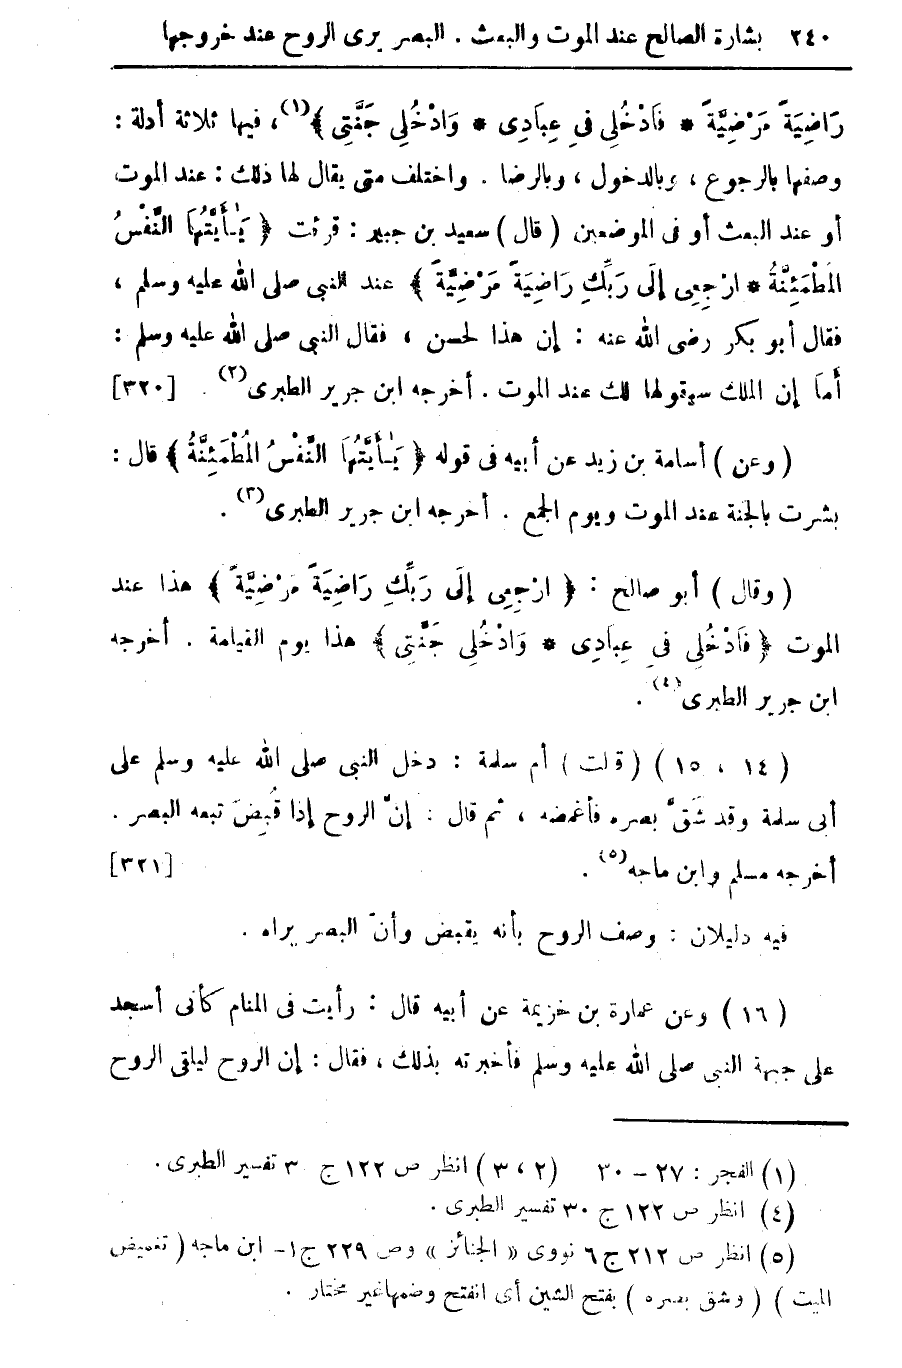 ٢٤٠ بشارة الصالح عند الموت والبعث . البصر يرى الروح عند خروجها
رَاضِيَةً مَرْضِيَّةً * فَادْخُلِى فِى عِبَادِى * وَادْخُلِى جَنَّتِى ﴾(١)، فيها ثلاثة أدلة :
وصفها بالرجوع ، وبالدخول ، وبالرضا . واختلف متى يقال لها ذلك : عند الموت
أو عند البعث أو فى الموضعين ( قال ) سعيد بن جبير : قرئت ﴿ يَٰأَيَّتُهَا النَّفْسُ
المُطْمَئِنَّةُ * ارْجِعِى إِلَى رَبِّكِ رَاضِيَةً مَرْضِيَّةً ﴾ عند النبى صلى الله عليه وسلم ،
فقال أبو بكر رضى الله عنه : إن هذا لحسن ، فقال النبى صلى الله عليه وسلم :
أَمَا إن الملك سيقولها لك عند الموت . أخرجه ابن جرير الطبرى(٢) . [٣٢٠]
( وعن ) أسامة بن زيد عن أبيه فى قوله ﴿ يَٰأَيَّتُهَا النَّفْسُ المُطْمَئِنَّةُ ﴾ قال :
بشرت بالجنة عند الموت ويوم الجمع . أخرجه ابن جرير الطبرى(٣) .
( وقال ) أبو صالح : ﴿ ارْجِعِى إِلَى رَبِّكِ رَاضِيَةً مَرْضِيَّةً ﴾ هذا عند
الموت ﴿ فَادْخُلِى فِى عِبَادِى * وَادْخُلِى جَنَّتِى ﴾ هذا يوم القيامة . أخرجه
ابن جرير الطبرى(٤) .
( ١٤ ، ١٥ ) ( قالت ) أم سلمة : دخل النبى صلى الله عليه وسلم على
أبى سلمة وقد شَقَّ بصره فأغمضه ، ثم قال : إنّ الروح إذا قُبِضَ تبعه البصر .
أخرجه مسلم وابن ماجه(٥) . [٣٢١]
فيه دليلان : وصف الروح بأنه يقبض وأنّ البصر يراه .
( ١٦ ) وعن عمارة بن خزيمة عن أبيه قال : رأيت فى المنام كأنى أسجد
على جبهة النبى صلى الله عليه وسلم فأخبرته بذلك ، فقال : إن الروح ليلقى الروح
(١) الفجر : ٢٧ – ٣٠ (٢ ، ٣ ) انظر ص ١٢٢ ج ٣٠ تفسير الطبرى .
(٤) انظر ص ١٢٢ ج ٣٠ تفسير الطبرى .
(٥) انظر ص ٢١٢ ج ٦ نووى « الجنائز » وص ٢٢٩ ج ١- ابن ماجه ( تغميض
الميت ) ( وشق بصره ) بفتح الشين أى انفتح وضمها غير مختار .